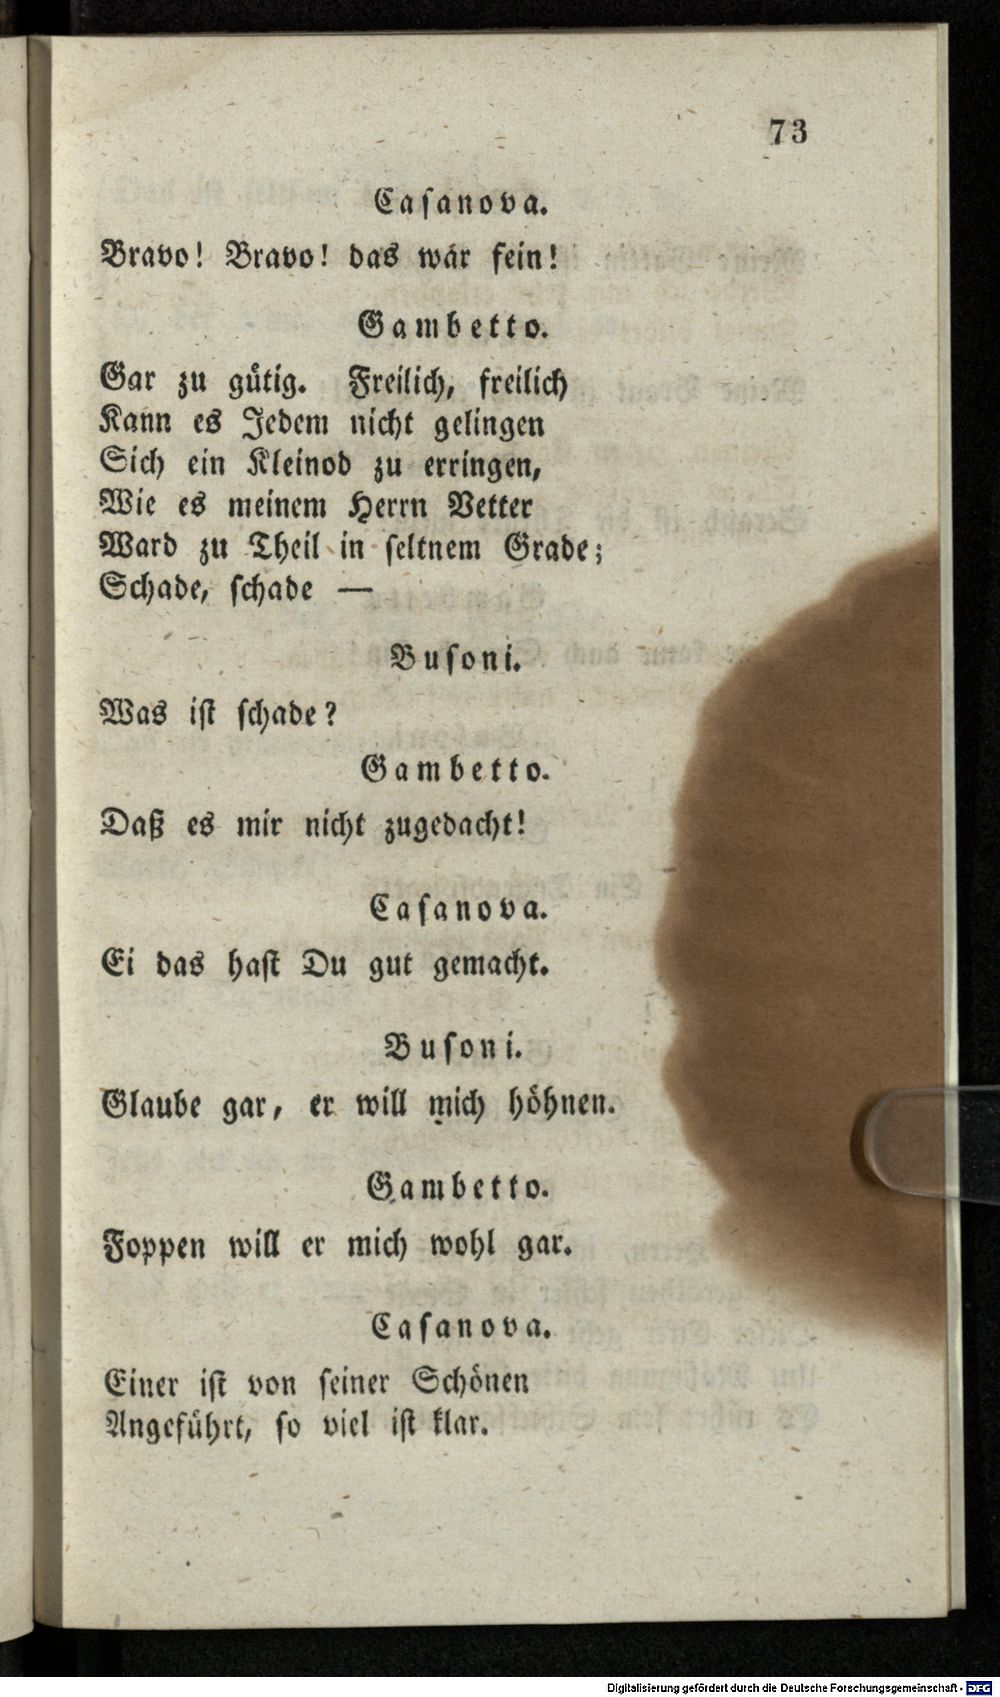 73
Casanova.
Bravo! Bravo! das wär fein!
Gambetto.
Gar zu gütig. Freilich, freilich
Kann es Jedem nicht gelingen
Sich ein Kleinod zu erringen,
Wie es meinem Herrn Vetter
Ward zu Theil in seltnem Grade;
Schade, schade —
Busoni.
Was ist schade?
Gambetto.
Daß es mir nicht zugedacht!
Casanova.
Ei das hast Du gut gemacht.
Busoni.
Glaube gar, er will mich höhnen.
Gambetto.
Foppen will er mich wohl gar.
Casanova.
Einer ist von seiner Schönen
Angeführt, so viel ist klar.
Digitalisierung gefördert durch die Deutsche Forschungsgemeinschaft - DFG